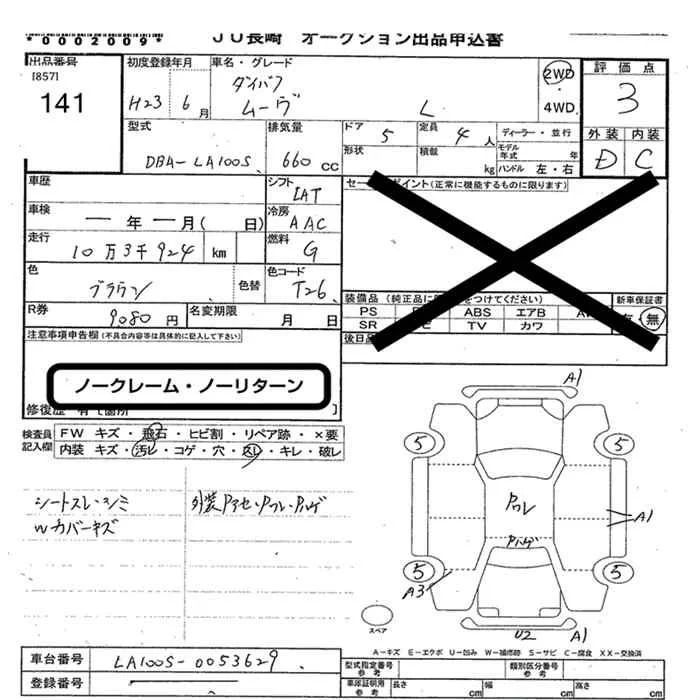 *0002009*
JU長崎 オークション出品申込書
出品番号 [857] 141
初度登録年月 H23 6月
車名・グレード ダイハツ ムーヴ L
2WD・4WD
評価点 3
外装 D 内装 C
型式 DBA-LA100S
排気量 660 CC
ドア 5 定員 4人
形状 積載 kg
ディーラー・並行
モデル年式 年
ハンドル 左・右
車歴
シフト IAT
車検 ー年ー月( 日)
冷房 AAC
走行 10万3千924 km
燃料 G
色 ブラウン 色替
色コード T26
R券 9080円
名変期限 月 日
(正常に機能するものに限ります)
装備品
をつけてください)
新車保証書 無
PS ABS エアB
SR TV カワ
後日品
注意事項申告欄(不具合内容等は具体的に記入して下さい)
ノークレーム・ノーリターン
検査員記入欄
FW キズ・飛石・ヒビ割・リペア跡・×要
内装 キズ・汚レ・コゲ・穴・スレ・キレ・破レ
シートスレ・シミ
Wカバーキズ
外装Pアセ・Pワレ・Pハゲ
A1
5 5
Pワレ
Pハゲ
A1
5 5
A3
U2 A1
スペア
A-キズ E-エクボ U-凹み W-補修跡 S-サビ C-腐食 XX-交換済
車台番号 LA100S-0053629
登録番号
型式指定番号 類別区分番号
車庫証明用 長さ cm 幅 cm 高さ cm